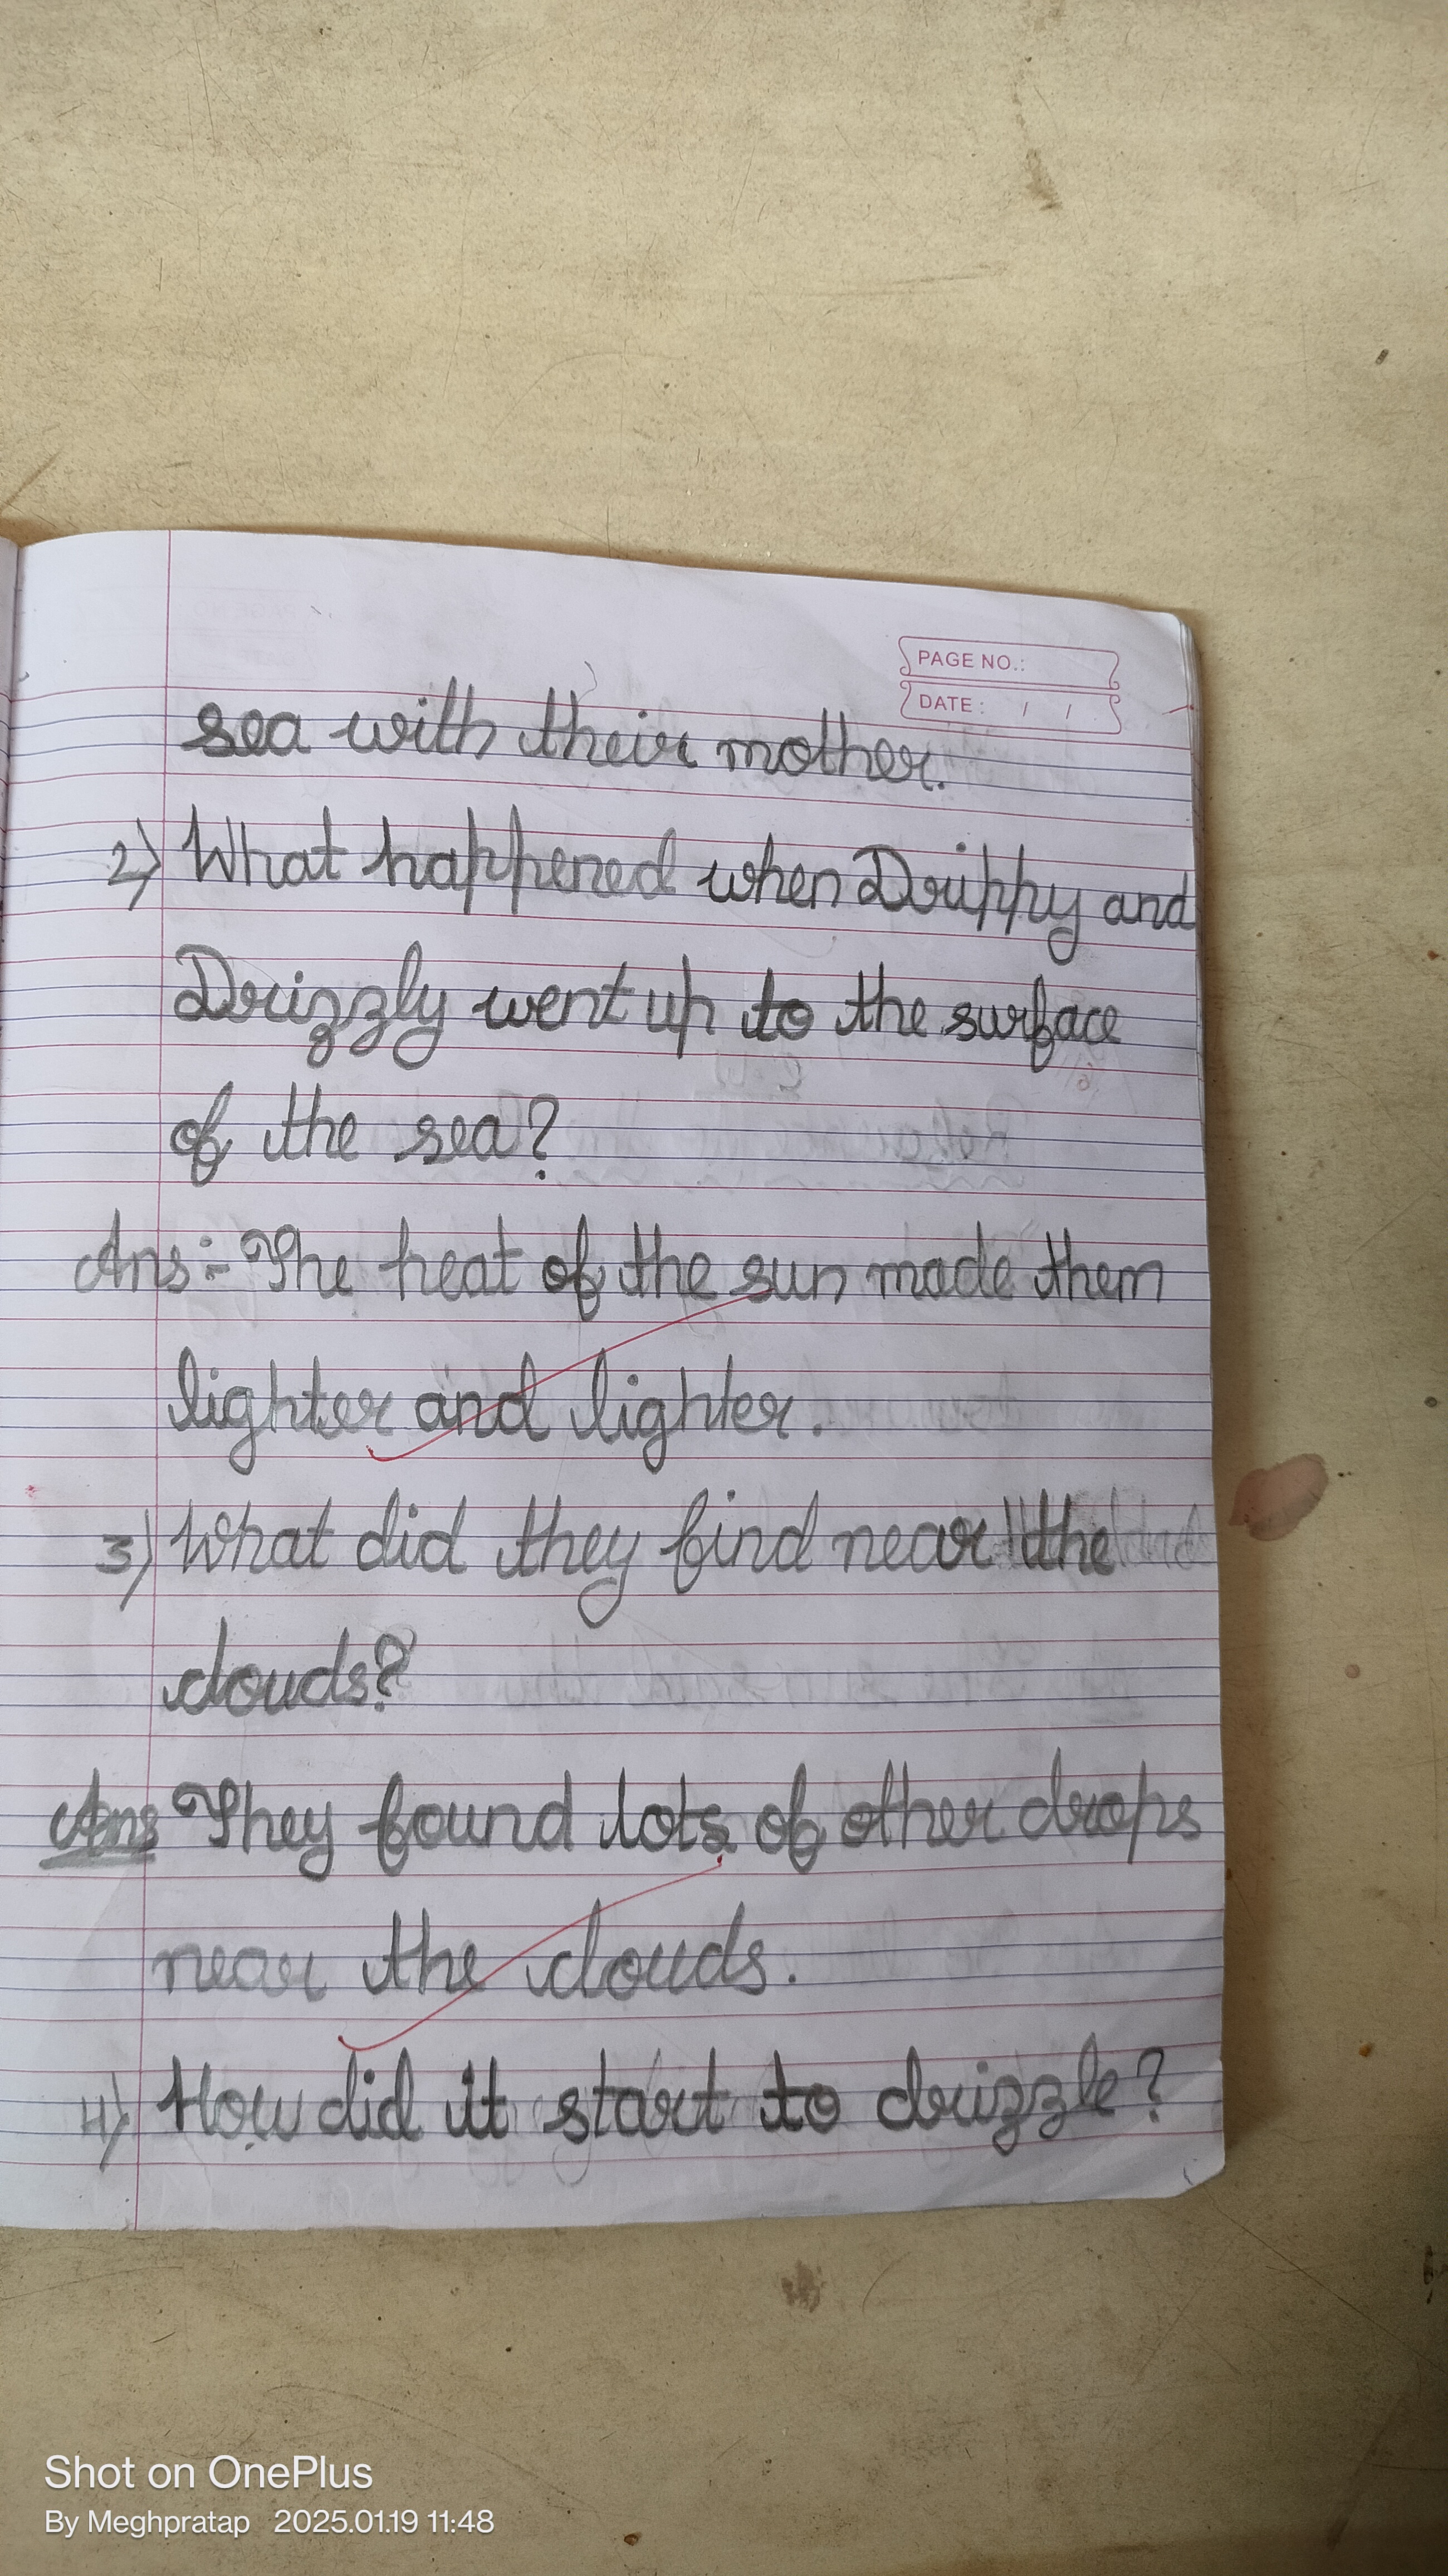 PAGE NO.:
DATE: / /
sea with their mother.
2) What happened when Drippy and
Drizzly went up to the surface
of the sea?
Ans:- The heat of the sun made them
lighter and lighter.
3) What did they find near the
clouds?
Ans They found lots of other drops
near the clouds.
4) How did it start to drizzle?
Shot on OnePlus
By Meghpratap 2025.01.19 11:48